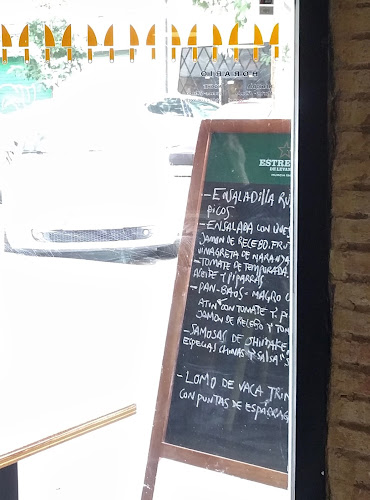 HORARIO
ESTRE
DE LEVAN
- ENSALADILLA RU
PICOS
- ENSALADA CON
JAMON DE RECEBO. FRU
VINAGRETA DE NARANJA
- TOMATE DE TEMPORADA.
ACEITE Y PIPARRAS
- PAN-BAOS = MAGRO
ATUN CON TOMATE Y P
JAMON DE RECEBO Y TOM
- SAMOSAS DE SHIITAKE
ESPECIAS CHINAS Y SALSA "S
- LOMO DE VACA TRIN
CON PUNTAS DE ESPARRAG